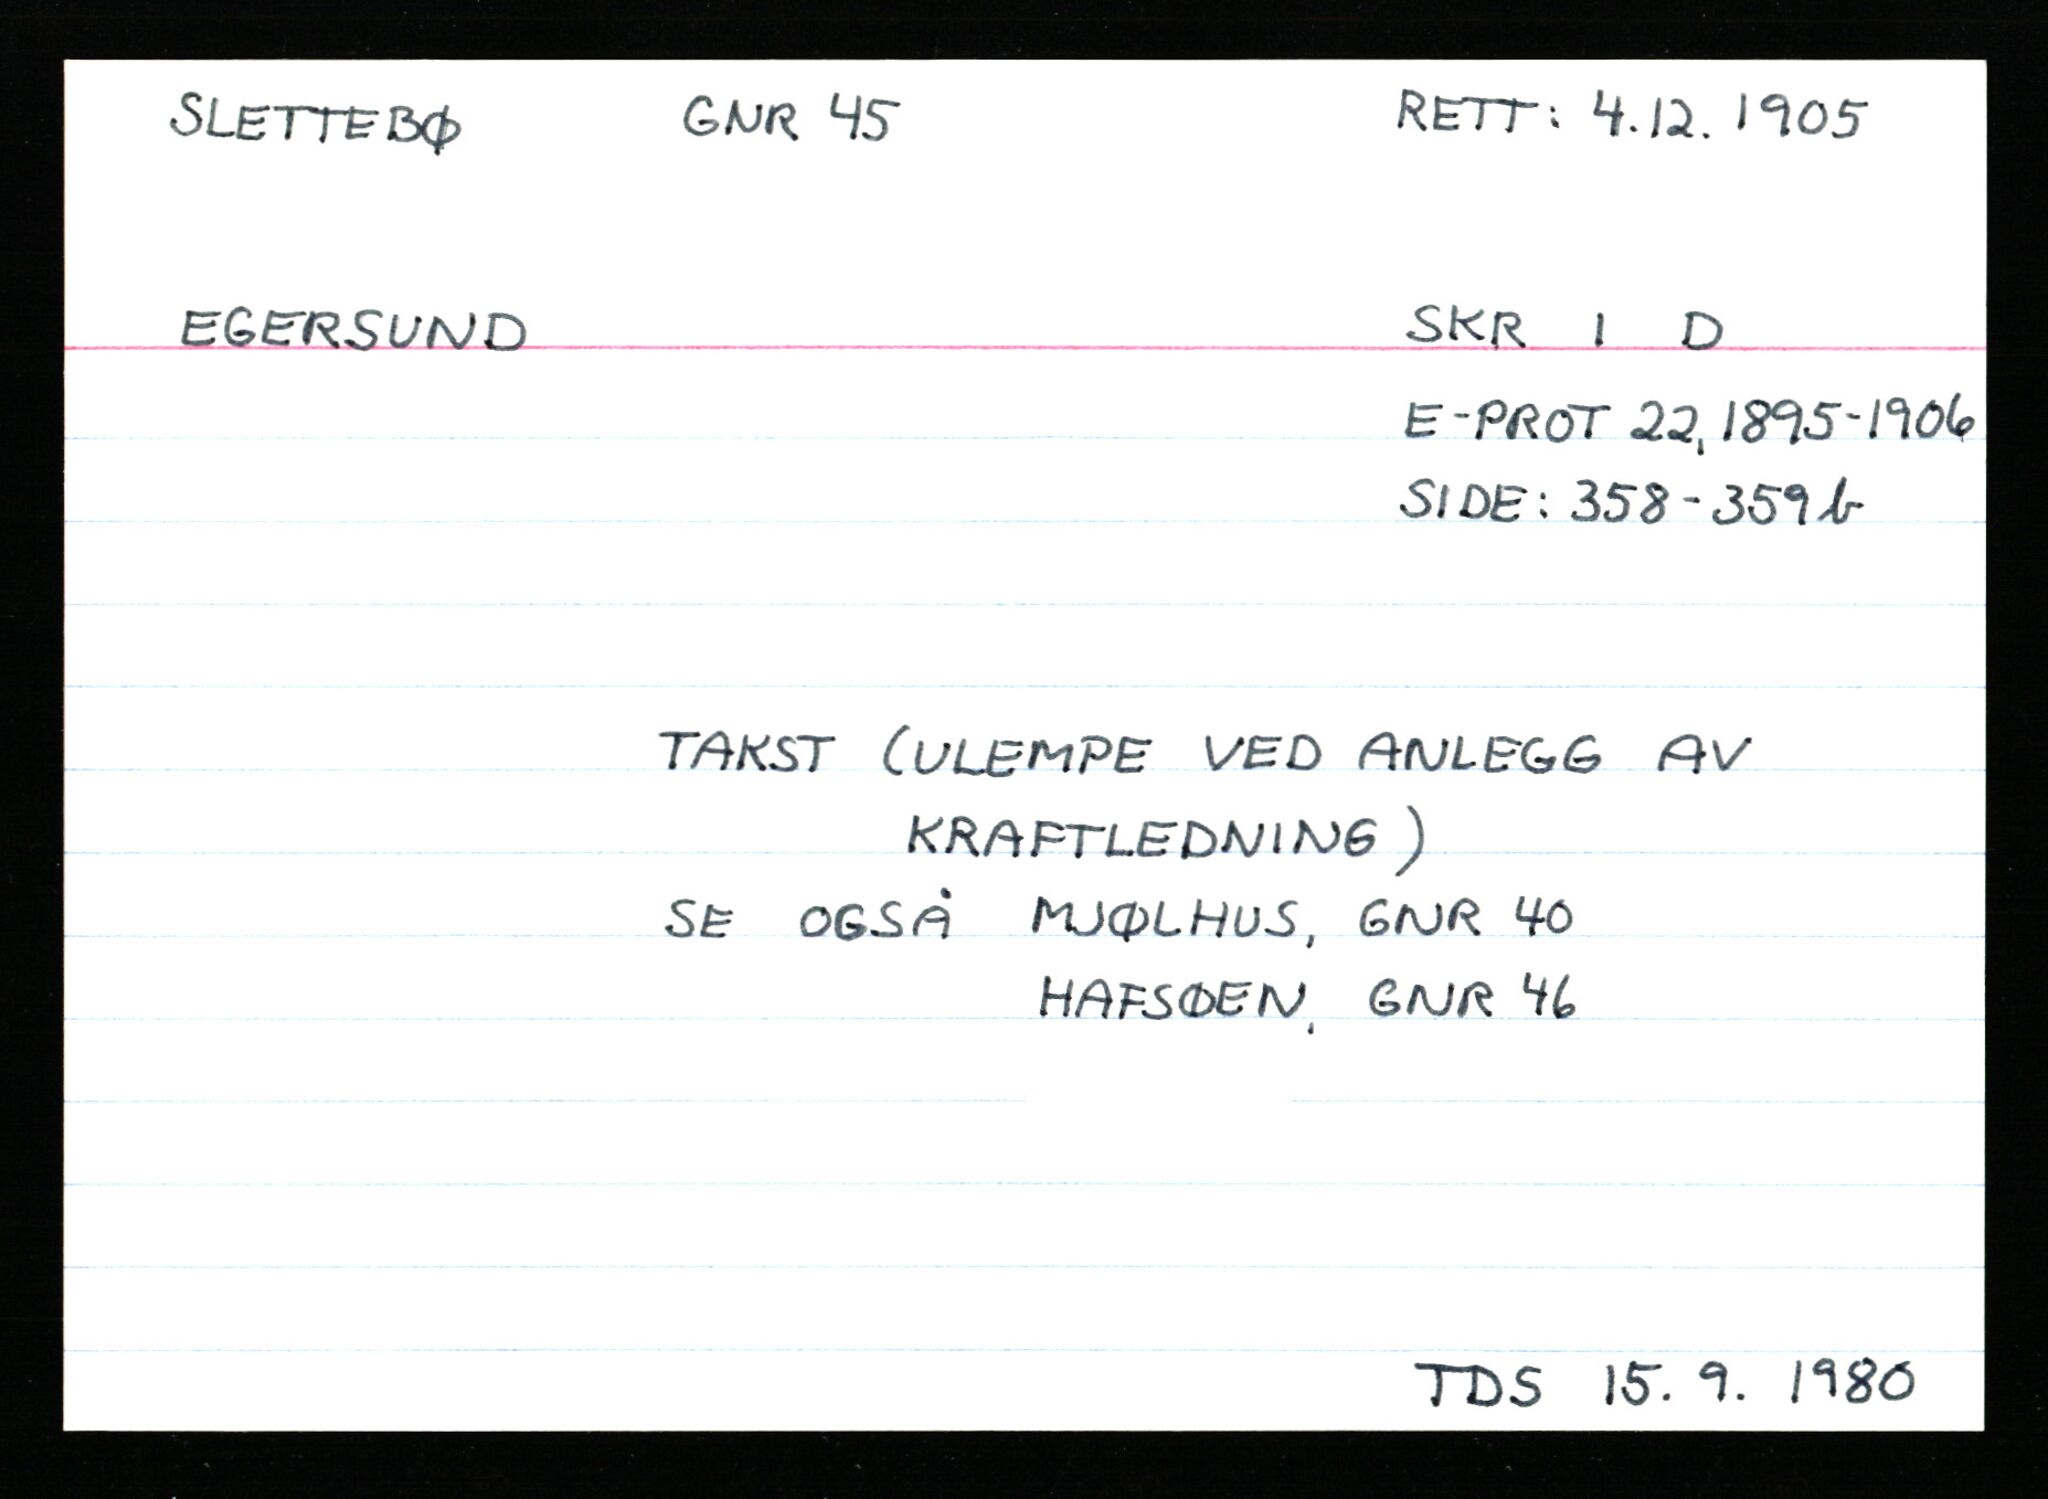 SLETTEBØ GNR 45 RETT: 4.12.1905
EGERSUND SKR I D
E-PROT 22, 1895-1906
SIDE: 358-359b
TAKST (ULEMPE VED ANLEGG AV
KRAFTLEDNING)
SE OGSÅ MJØLHUS, GNR 40
HAFSØEN, GNR 46
TDS 15.9.1980